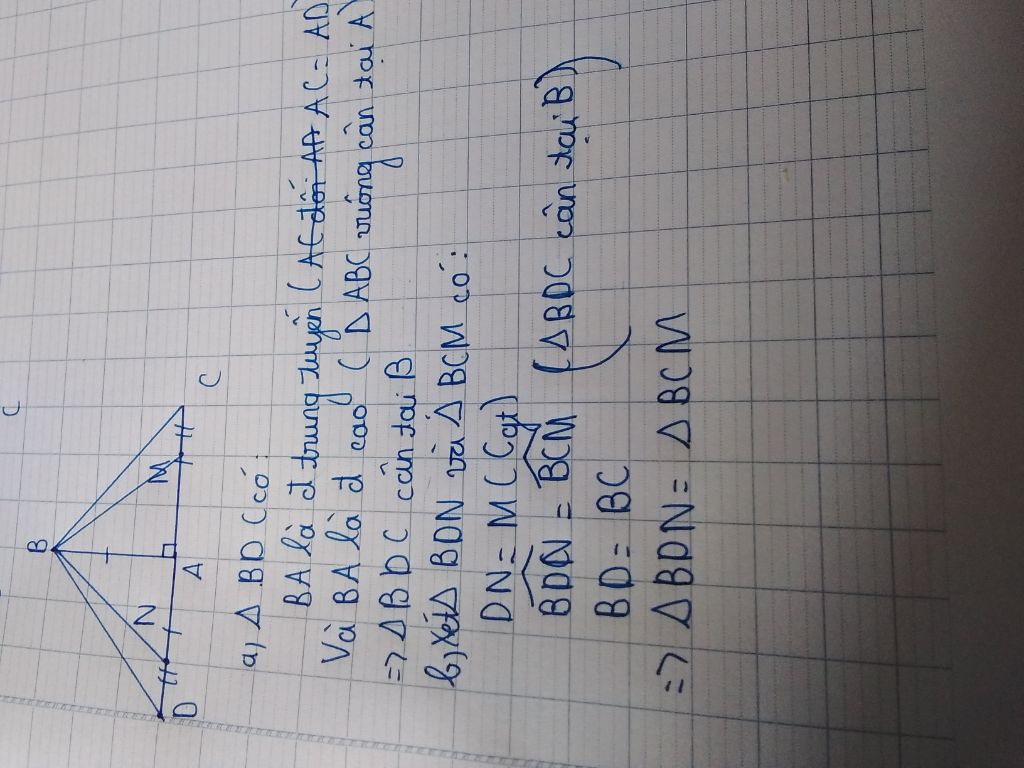 C
B
N
M
D
A
C
a, Δ BDC có:
BA là đ trung tuyến (AC đối AA AC = AD)
Và BA là đ cao (Δ ABC vuông cân tại A)
=> Δ BDC cân tại B
b, Xét Δ BDN và Δ BCM có:
DN = MC (gt)
BDN = BCM (Δ BDC cân tại B)
BD = BC
=> Δ BDN = Δ BCM